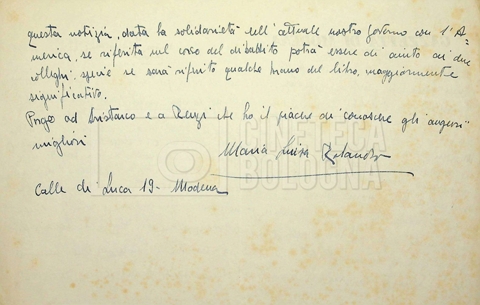 questa notizia, data la solidarietà nell'attuale nostro governo con l'A-
merica, se riferita nel corso del dibattito potrà essere di aiuto ai due
colleghi, specie se sarà riferito qualche brano del libro, maggiormente
significativo.
Porgo ad Aristarco e a Renzi che ho il piacere di conoscere gli auguri
migliori
Maria Luisa
Calle di Luca 19 - Modena
CINETECA
BOLOGNA